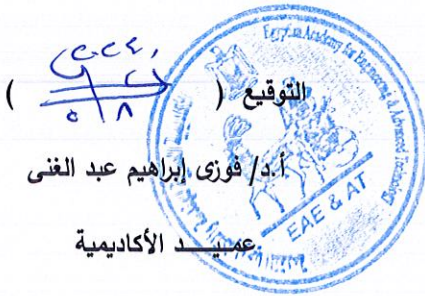 التوقيع ( )
٥/٨
أ.د/ فوزى إبراهيم عبد الغنى
عميــــد الأكاديمية
Egyptian Academy for Engineering & Advanced Technology
EAE & AT